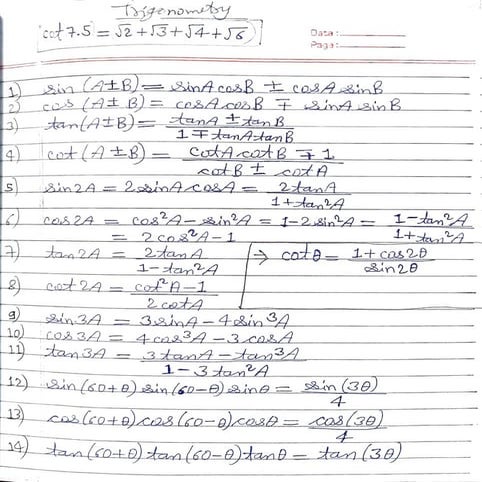 Trigonometry
cot 7.5 = √2 + √3 + √4 + √6
Date:
Page:
1) sin (A ± B) = sinA cosB ± cosA sinB
2) cos (A ± B) = cosA cosB ∓ sinA sinB
3) tan(A ± B) = (tanA ± tanB)/(1 ∓ tanA tanB)
4) cot (A ± B) = (cotA cotB ∓ 1)/(cotB ± cotA)
5) sin2A = 2sinA cosA = 2tanA/(1 + tan²A)
6) cos2A = cos²A − sin²A = 1 − 2sin²A = (1 − tan²A)/(1 + tan²A)
= 2cos²A − 1
7) tan2A = 2tanA/(1 − tan²A) ⇒ cotθ = (1 + cos2θ)/sin2θ
8) cot 2A = (cot²A − 1)/2cotA
9) sin3A = 3sinA − 4sin³A
10) cos3A = 4cos³A − 3cosA
11) tan3A = (3tanA − tan³A)/(1 − 3tan²A)
12) sin(60+θ) sin(60−θ) sinθ = sin(3θ)/4
13) cos(60+θ) cos(60−θ) cosθ = cos(3θ)/4
14) tan(60+θ) tan(60−θ) tanθ = tan(3θ)